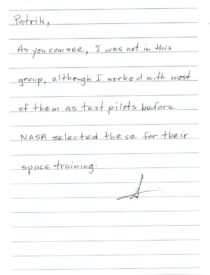 Patrik,
As you can see, I was not in this
group, although I worked with most
of them as test pilots before
NASA selected these for their
space training.